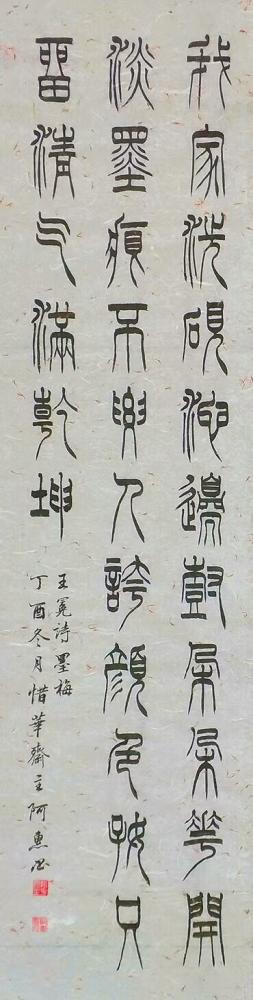 我家洗硯池邊樹朵朵花開
淡墨痕不要人誇顏色好只
留清气滿乾坤
王冕詩墨梅
丁酉冬月惜華齋主阿惠書